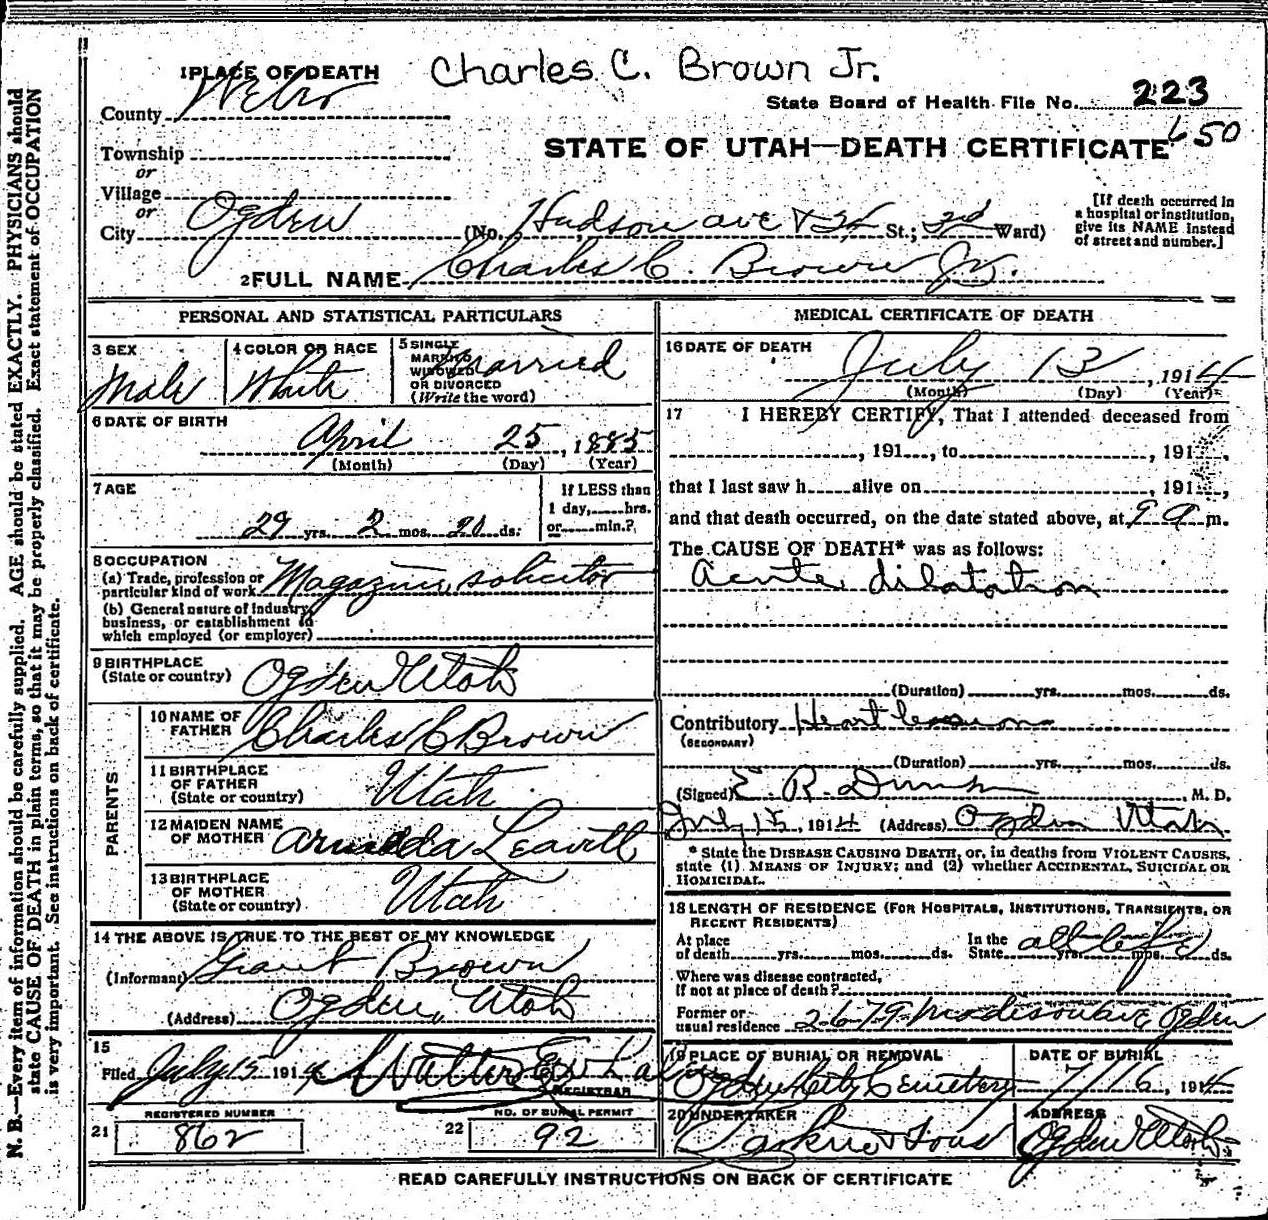 Charles C. Brown Jr.
1 PLACE OF DEATH
County Weber
State Board of Health File No. 223
650
STATE OF UTAH—DEATH CERTIFICATE
Township
or
Village
or
City Ogden (No. Hudson ave & 24 St.; 2nd Ward)
[If death occurred in a hospital or institution, give its NAME instead of street and number.]
2 FULL NAME Charles C. Brown Jr.
PERSONAL AND STATISTICAL PARTICULARS
3 SEX
Male
4 COLOR OR RACE
White
5 SINGLE
MARRIED
WIDOWED
OR DIVORCED
(Write the word)
Married
6 DATE OF BIRTH
April 25, 1885
(Month) (Day) (Year)
7 AGE
29 yrs. 2 mos. 20 ds.
If LESS than
1 day,......hrs.
or......min.?
8 OCCUPATION
(a) Trade, profession or
particular kind of work Magazine solicitor
(b) General nature of industry,
business, or establishment in
which employed (or employer)
9 BIRTHPLACE
(State or country) Ogden Utah
PARENTS
10 NAME OF
FATHER Charles C Brown
11 BIRTHPLACE
OF FATHER
(State or country) Utah
12 MAIDEN NAME
OF MOTHER Leavitt
13 BIRTHPLACE
OF MOTHER
(State or country) Utah
14 THE ABOVE IS TRUE TO THE BEST OF MY KNOWLEDGE
(Informant) Grant Brown
(Address) Ogden, Utah
15
Filed July 15 1914 Walter
REGISTRAR
REGISTERED NUMBER
21 862
NO. OF BURIAL PERMIT
22 92
MEDICAL CERTIFICATE OF DEATH
16 DATE OF DEATH
July 13, 1914
(Month) (Day) (Year)
17 I HEREBY CERTIFY, That I attended deceased from
, 191 , to , 191 ,
that I last saw h alive on , 191 ,
and that death occurred, on the date stated above, at 9 a m.
The CAUSE OF DEATH* was as follows:
Acute dilatation
(Duration) yrs. mos. ds.
Contributory Heart lesion
(SECONDARY)
(Duration) yrs. mos. ds.
(Signed) E. R. M. D.
July 15, 1914 (Address) Ogden Utah
* State the DISEASE CAUSING DEATH, or, in deaths from VIOLENT CAUSES,
state (1) MEANS OF INJURY; and (2) whether ACCIDENTAL, SUICIDAL OR
HOMICIDAL.
18 LENGTH OF RESIDENCE (FOR HOSPITALS, INSTITUTIONS, TRANSIENTS, OR
RECENT RESIDENTS)
At place
of death yrs. mos. ds.
In the
State all life yrs. mos. ds.
Where was disease contracted,
If not at place of death?
Former or
usual residence 2679 Madison ave Ogden
19 PLACE OF BURIAL OR REMOVAL
Ogden City Cemetery
DATE OF BURIAL
7/16, 1914
20 UNDERTAKER
Larkin & Sons
ADDRESS
Ogden Utah
READ CAREFULLY INSTRUCTIONS ON BACK OF CERTIFICATE
N. B.—Every item of information should be carefully supplied. AGE should be stated EXACTLY. PHYSICIANS should
state CAUSE OF DEATH in plain terms, so that it may be properly classified. Exact statement of OCCUPATION
is very important. See instructions on back of certificate.